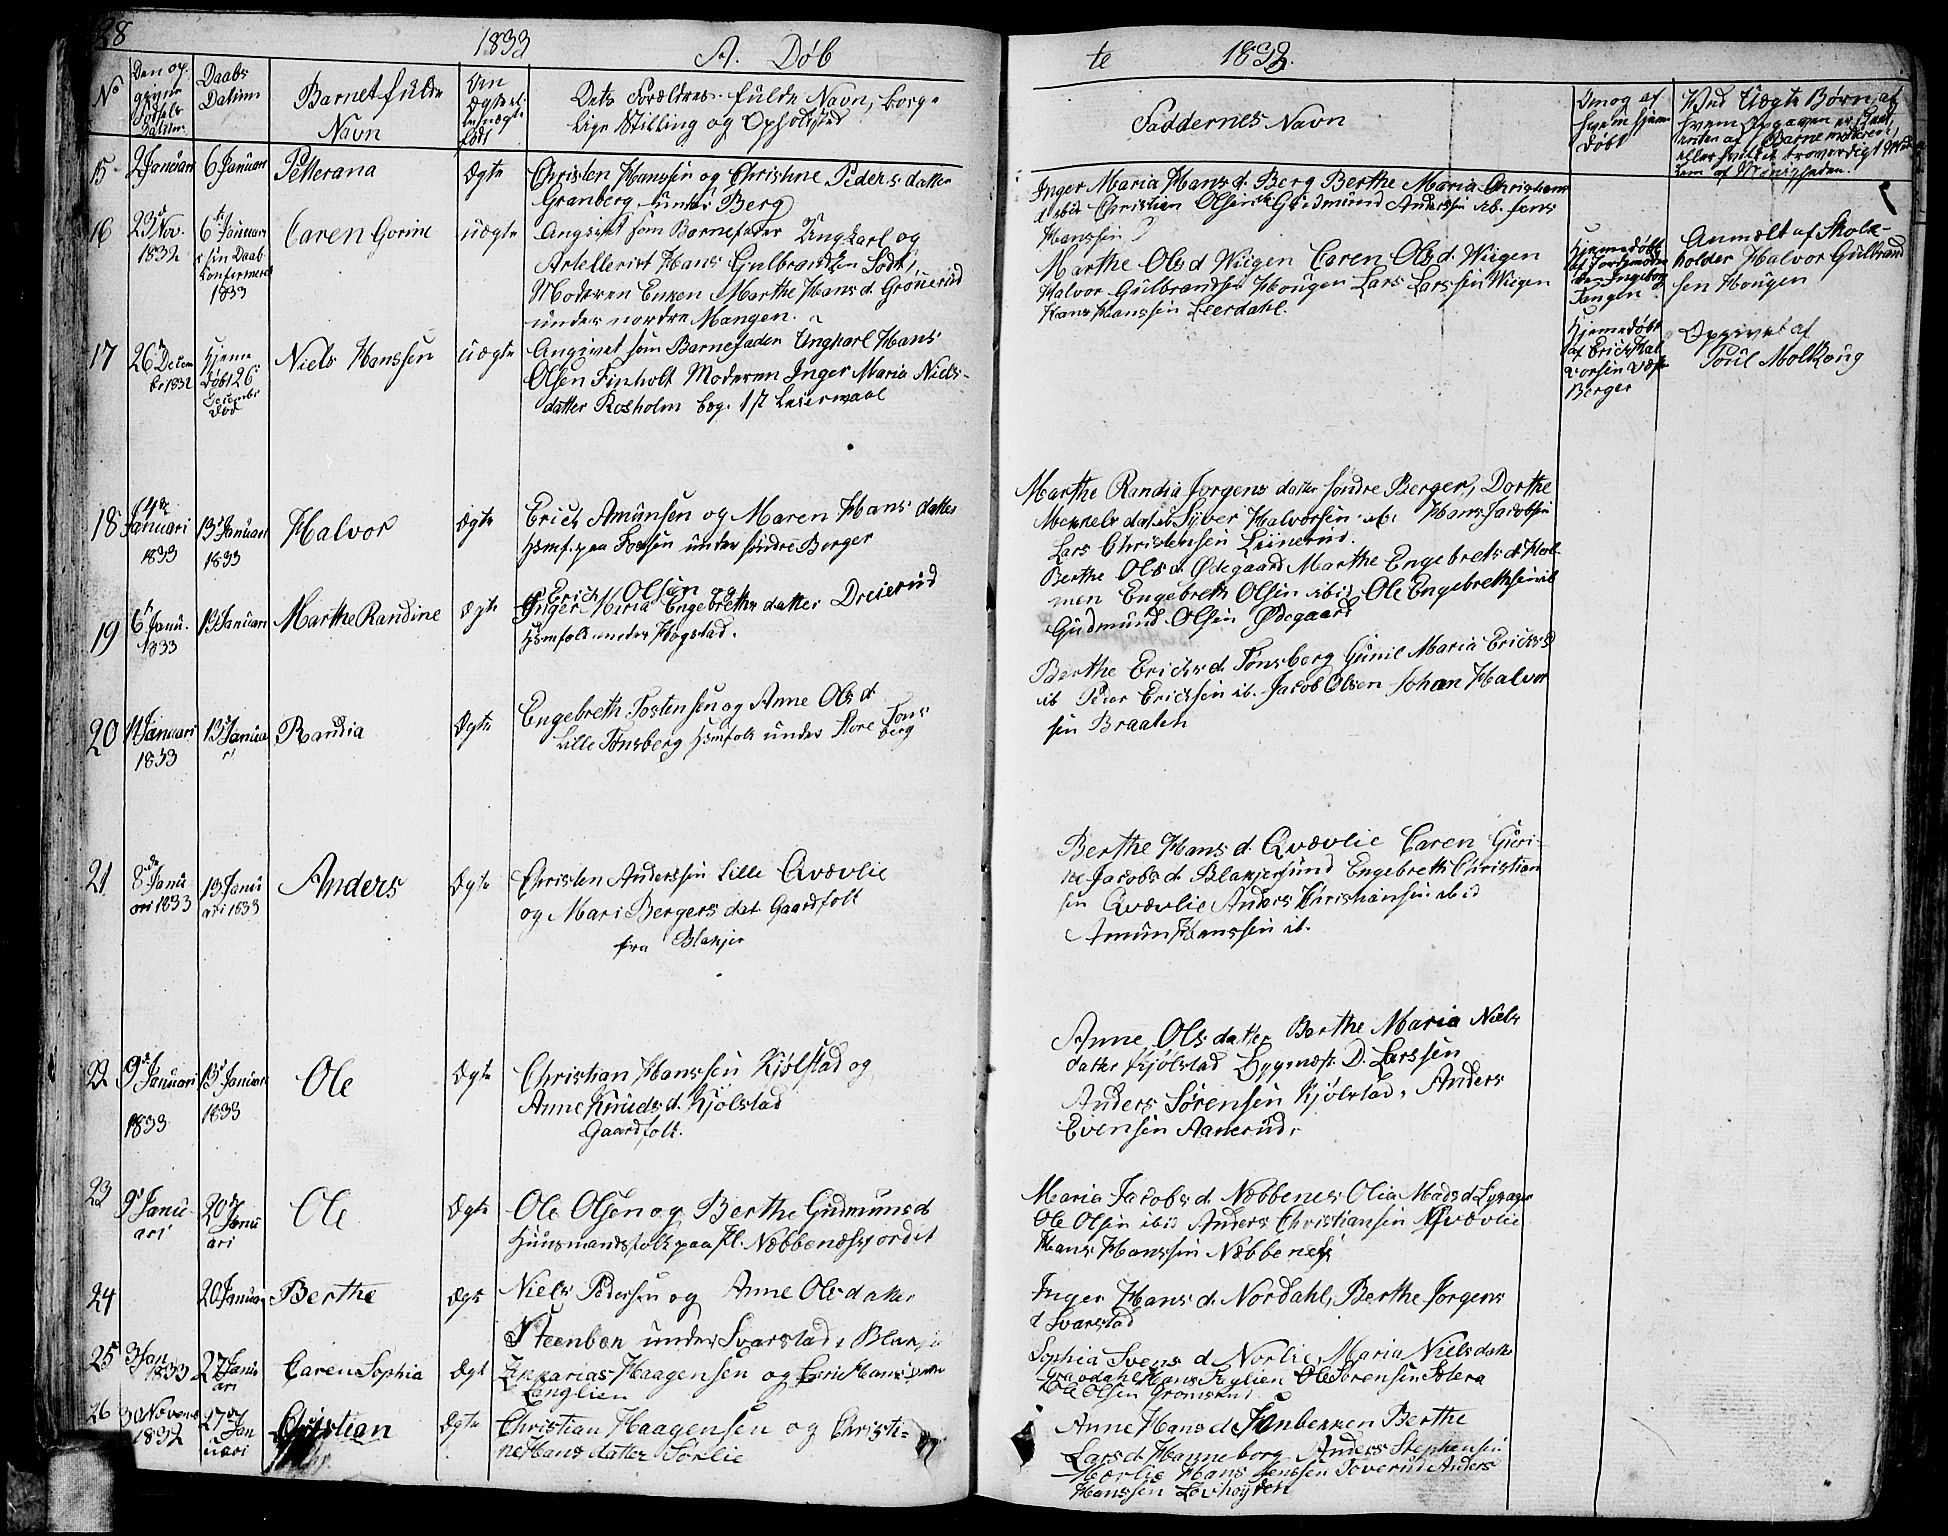 28
1833
A. Døb
te
1833.
No
Daabs
Datum
Barnets fulde
Navn
Om
Ægte el.
Dets Forældres fulde Navn, borger
lige Stilling og Opholdsted
Faddernes Navn
hvem hjem
døbt
Ved Uægte Børn, af
hvem Opgaven er skeet,
enten af Barnemoderen,
15
2 Januari
6 Januari
Petterana
Ægte
Christen Hanssen og Christine Peders datter
Granberg under Berg
Inger Maria Hans d. Berg Berthe Maria Christians
d ibid Christian Olsen Gudmund Anderssen ib. Jens
Hanssen
16
23d Nov.
1832
6t Januari
sin Daab
Confirmeret
1833
Caren Gorine
uægte
Angivet som Barnefader Ungkarl og
Artellerist Hans Gulbrandsen
Moderen Enken Marthe Hans d. Grønerud
under nordre Mangen.
Marthe Ols d Wiigen Caren Ols d. Wiigen
Halvor Gulbrandsen Hougen Lars Larssen Wiigen
Hans Hanssen Leerdahl.
Hjemmedøbt
af Jordemoder
Ingeborg
Tangen
Anmeldt af Skole-
holder Halvor Gulbrand
sen Hougen
17
26 Decem
ber 1832
Hjeme
døbt 26
Decembr
død
Niels Hanssen
uægte
Angivet som Barnefader Ungkarl Hans
Olsen Finholt Moderen Inger Maria Niels-
datter Rosholm beg. 1st Leiermaal
Hjemedøbt
af Erich Hal
vorsen
Berger
Opgivet af
Poul Molkoug
18
Januari
1833
13 Januari
1833
Halvor
Ægte
Erich Amunsen og Maren Hans datter
Hsmf. paa Fossen under søndre Berger
Marthe Randia Jorgens datter søndre Berger, Dorthe
Mekkels dat ib Syver Halvorsen ib. Hans Jacobsen
Lars Christensen Liinerud.
19
6t Janu.
1833
13 Januari
Marthe Randine
Ægte
Erich Olsen og
Inger Maria Engebreths datter Dreierud
Hsmfolk under Hogstad.
Berthe Ols d. Ødegaard Marthe Engebrets d. Hol
men Engebreth Olsen ibid, Ole Engebrethsen ib
Gudmund Olsen Ødegaard
20
11 Januari
1833
13 Janua
ri
Randia
Ægte
Engebreth Tostensen og Anne Ols d
Lille Tønsberg Hsmfolk under Store Tøns
berg
Berthe Erichs d. Tønsberg Gunil Maria Erichsd
ib Peder Ericksen ib. Jacob Olsen Johan Halvor
sen Braaten
21
8de Janu
ari 1833
13 Janu
ari 1833
Anders
Ægte
Christen Anderssen Lille Qvævlie
og Mari Bergers dat Gaardfolk
fra Blakjer
Berthe Hans d. Qvævlie Caren Guri-
ne Jacobs d. Blakjersund Engebreth Christian
sen Qvævlie Anders Christiansen ibid
Amun Hanssen ib.
22
9d Januari
1833
13 Januar
1833
Ole
Ægte
Christian Hanssen Kiølstad og
Anne Knuds d. Kjølstad
Gaardfolk.
Anne Ols datter Berthe Maria Niels
datter Kjølstad Bygmest. D. Larssen
Anders Sørensen Kjølstad, Anders
Evensen Aanerud.
23
9d Janu-
ari
20de
Janu
ari
Ole
Ægte
Ole Olsen og Berthe Gudmuns d
Huusmandsfolk paa Pl. Næbbenæsjordet
Maria Jacobs d. Næbbenes Olia Mads d
Ole Olsen ibid Anders Christiansen Qvævlie
Hans Hanssen Næbbenes
24
20 Januar
Berthe
Ægt
Niels Pedersen og Anne Ols datter
Steenbon under Svarstad i Blakjer
Inger Hans d. Nordahl, Berthe Jorgens
d Svarstad
25
3 Jan
1833
27 Janu
ari
Caren Sophia
Ægt
Zakarias Haagensen og Hans datter
Langlien
Sophia Svens d Norlie, Maria Niels datter
Gravdahl Hans Ole Sørensen
Ole Olsen
26
30 Novem
1832
27de
Jan
uari
Christian
Ægte
Christian Haagensen og Christi-
ne Hans datter Sorlie
Anne Hans d Berthe
Lars d Hanneborg Anders Stephensen
Mærlie Hans Jenssen Toverud Anders
Hanssen